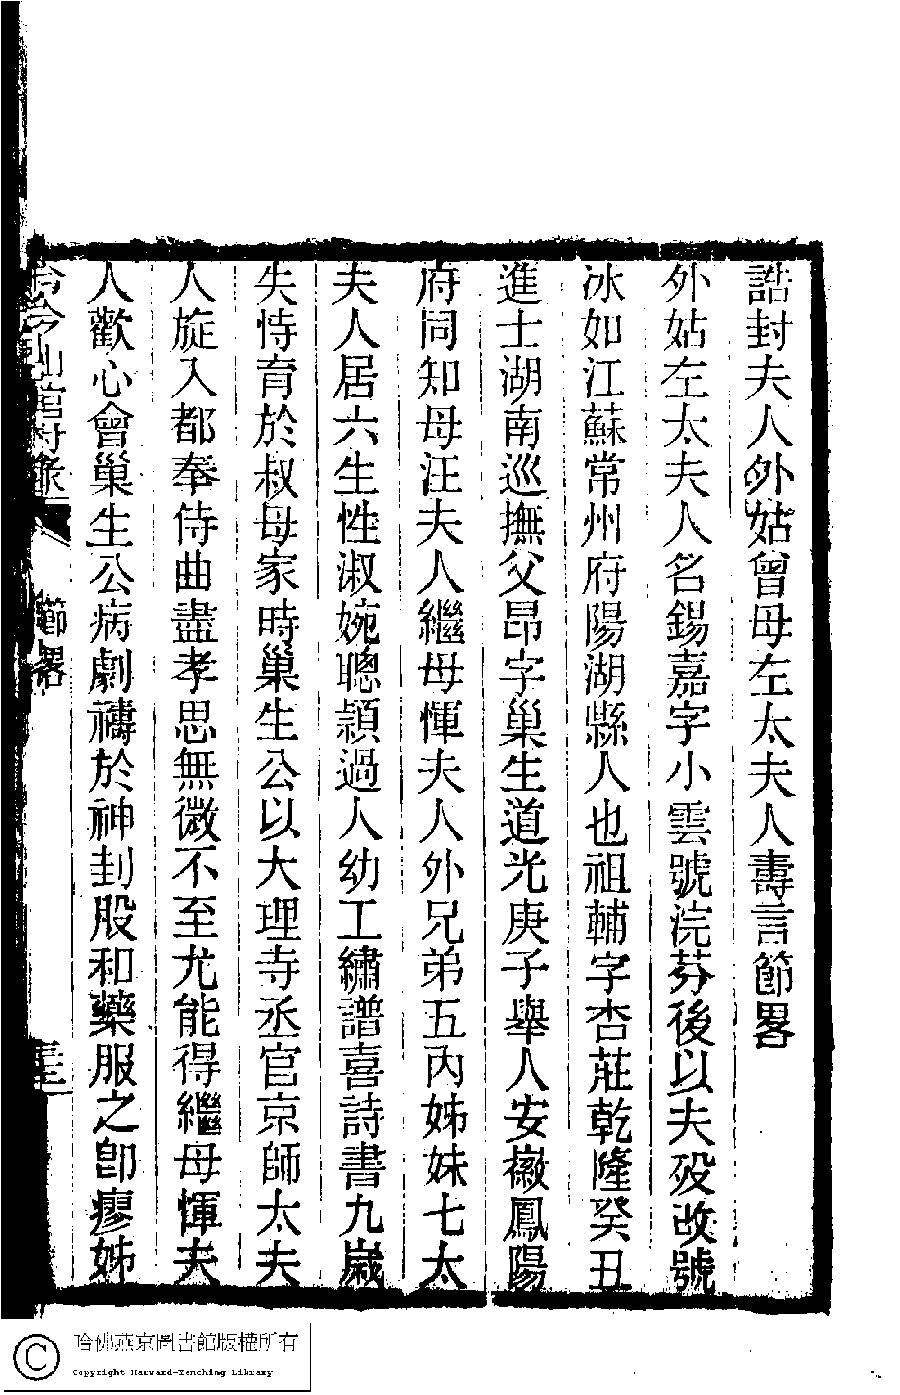 誥封夫人外姑曾母左太夫人壽言節畧
外姑左太夫人名錫嘉字小雲號浣芬後以夫殁改號
冰如江蘇常州府陽湖縣人也祖輔字杏莊乾隆癸丑
進士湖南巡撫父昂字巢生道光庚子舉人安徽鳳陽
府同知母汪夫人繼母惲夫人外兄弟五內姊妹七太
夫人居六生性淑婉聰頴過人幼工繡譜喜詩書九歲
失恃育於叔母家時巢生公以大理寺丞官京師太夫
人旋入都奉侍曲盡孝思無微不至尤能得繼母惲夫
人歡心會巢生公病劇禱於神刲股和藥服之卽瘳姊
吟仙館附錄 節畧
哈佛燕京圖書館版權所有
Copyright Harvard-Yenching Library